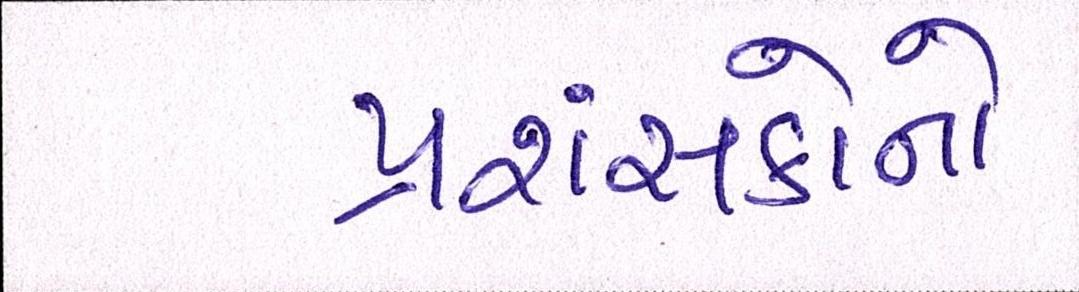 પ્રશંસકોનો